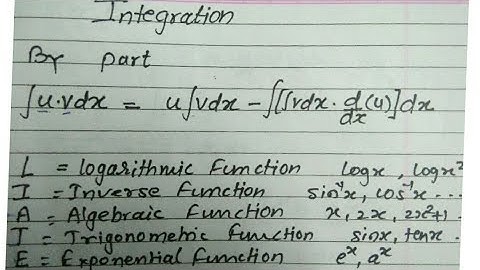 Integration
By part
∫u.vdx = u∫vdx - ∫[∫vdx. d/dx(u)]dx
L = logarithmic Function logx, logx²
I = Inverse Function sin⁻¹x, cos⁻¹x ...
A = Algebraic Function x, 2x, 2x²+1 .
T = Trigonometric Function sinx, tenx .
E = Exponential Function eˣ, aˣ